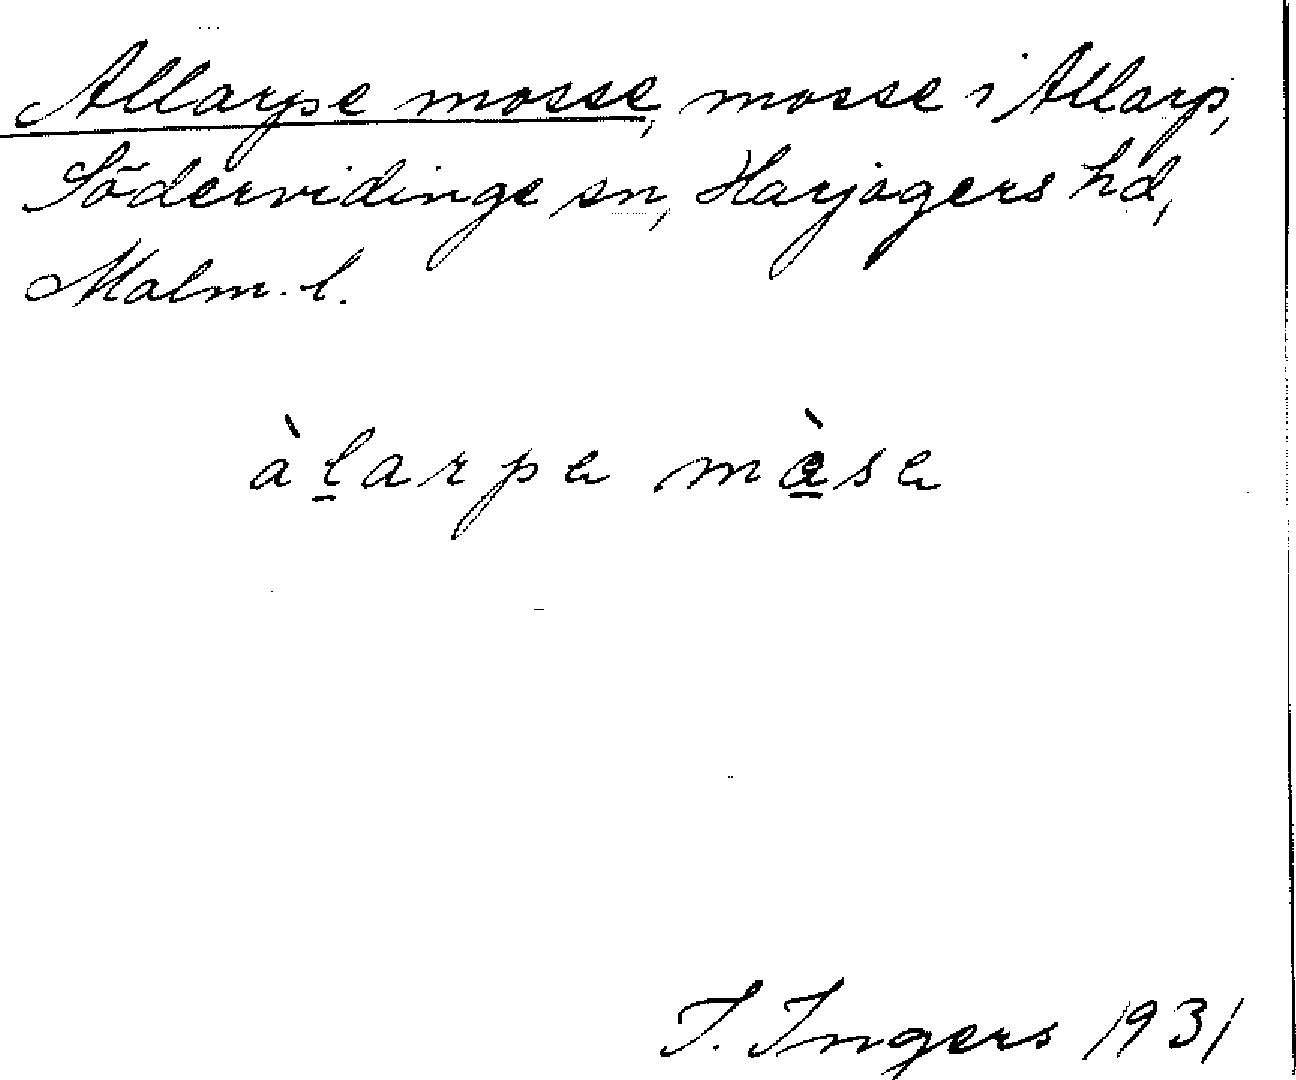 Allarpe mosse, mosse i Allarp,
Södervidinge sn, Harjagers hd,
Malm. l.
àl̲arpa màsa
I. Ingers 1931